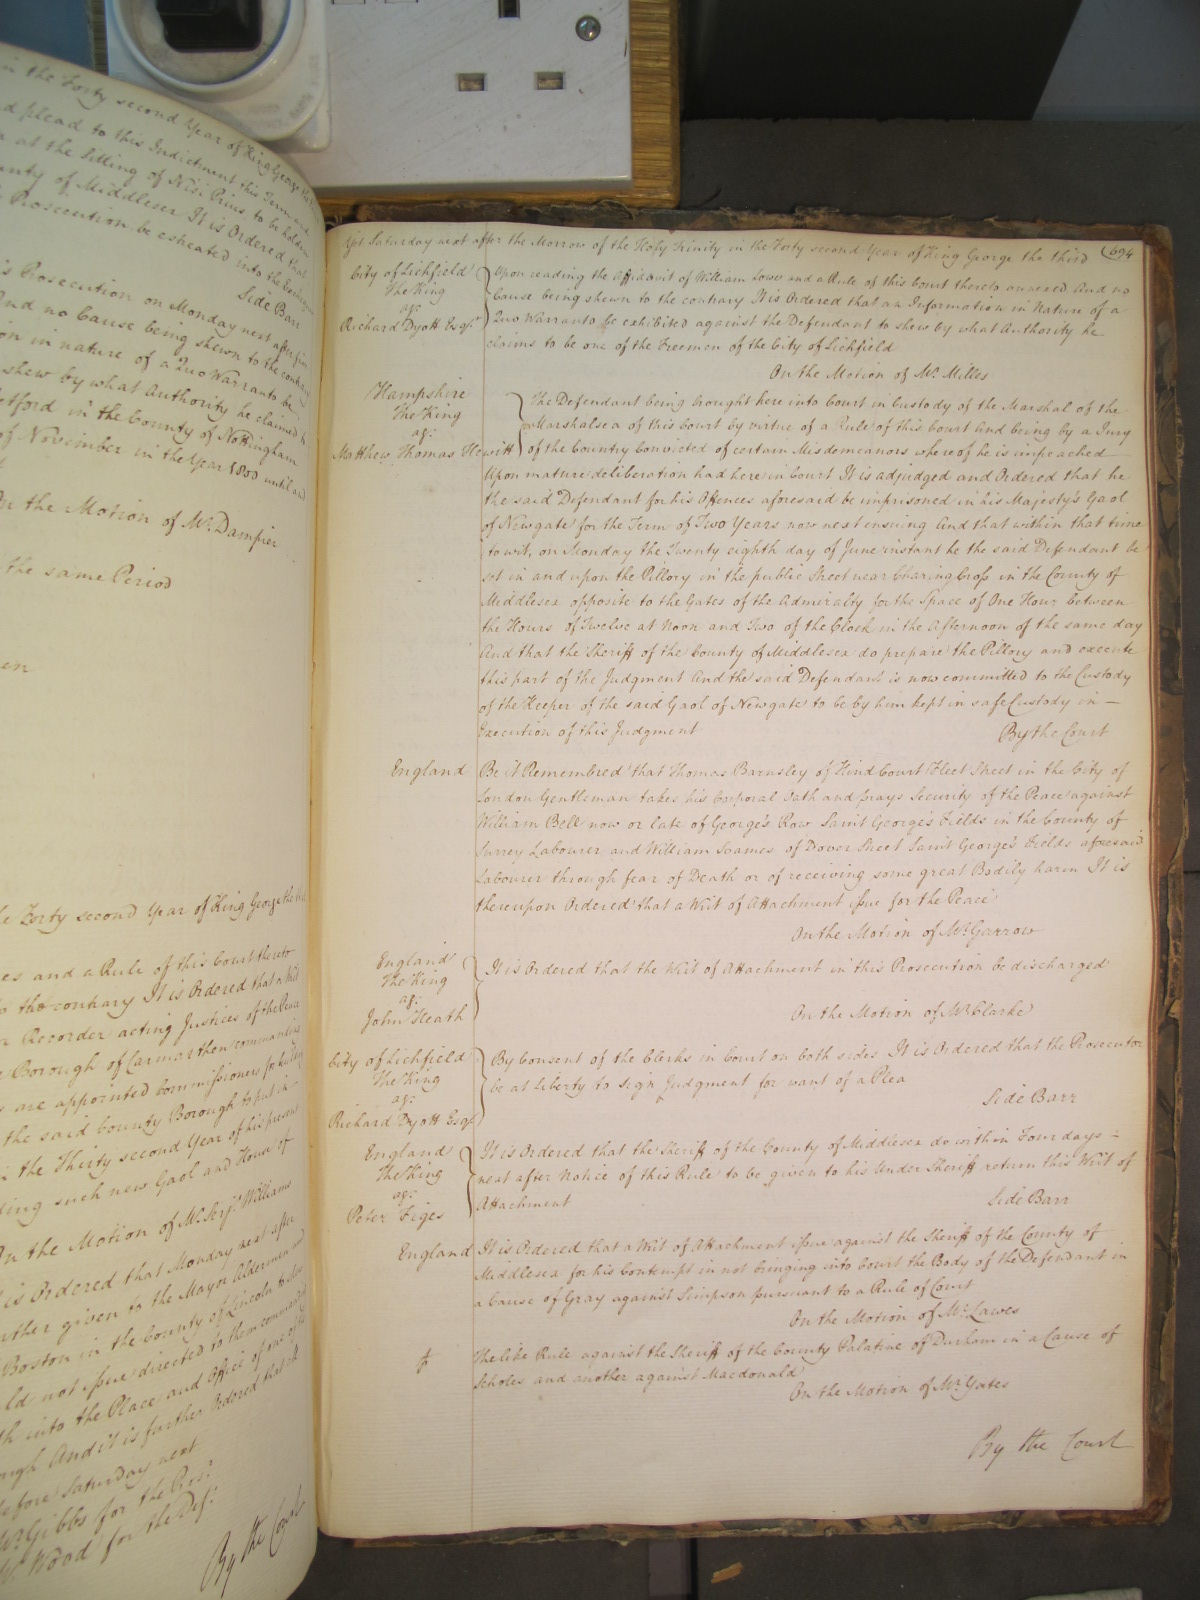 in the Forty second Year of King George the
d plead to this Indictment this Term and
at the Sitting of Nisi Prius to be holden
unty of Middlesex It is Ordered that
Prosecution be estreated into the Exchequer
Side Barr
is Prosecution on Monday next after five
And no Cause being shewn to the contrary
on in nature of a Quo Warranto be
shew by what Authority he claimed to
etford in the County of Nottingham
of November in the Year 1800 until and
On the Motion of Mr. Dampier
the same Period
en
e Forty second Year of King George the
es and a Rule of this Court thereto
to the contrary It is Ordered that a Writ
Recorder acting Justices of the Peace
Borough of Carmarthen commanding
are appointed Commissioners for building
the said County Borough to put in
in the Thirty second Year of his present
ding such new Gaol and House of
On the Motion of Mr. Serjt. Williams
is Ordered that Monday next after
further given to the Mayor Aldermen and
Boston in the County of Lincoln to shew
ld not issue directed to them commanding
th into the Place and Office of one of the
ough And it is further Ordered that
before Saturday next
Mr. Gibbs for the Pros:
Mr. Wood for the Def:
By the Court
Yet Saturday next after the Morrow of the Holy Trinity in the Forty second Year of King George the third 694
City of Lichfield
The King
ag:
Richard Dyott Esqr.
Upon reading the Affidavit of William Lowe and a Rule of this Court thereto annexed And no
Cause being shewn to the contrary It is Ordered that an Information in Nature of a
Quo Warranto be exhibited against the Defendant to shew by what Authority he
claims to be one of the Freemen of the City of Lichfield
On the Motion of Mr. Milles
Hampshire
The King
ag:
Matthew Thomas Hewitt
The Defendant being brought here into Court in Custody of the Marshal of the
Marshalsea of this Court by virtue of a Rule of this Court And being by a Jury
of the Country Convicted of certain Misdemeanors whereof he is impeached
Upon mature deliberation had here in Court It is adjudged and Ordered that he
the said Defendant for his Offences aforesaid be imprisoned in his Majesty's Gaol
of Newgate for the Term of Two Years now next ensuing And that within that time
to wit, on Monday the Twenty eighth day of June instant he the said Defendant be
set in and upon the Pillory in the public Street near Charing Cross in the County of
Middlesex opposite to the Gates of the Admiralty for the Space of One Hour between
the Hours of Twelve at Noon and Two of the Clock in the Afternoon of the same day
And that the Sheriff of the County of Middlesex do prepare the Pillory and execute
this part of the Judgment And the said Defendant is now committed to the Custody
of the Keeper of the said Gaol of Newgate to be by him kept in safe Custody in —
Execution of this Judgment
By the Court
England
Be it Remembred that Thomas Barnsley of Hind Court Fleet Street in the City of
London Gentleman takes his Corporal Oath and prays Security of the Peace against
William Bell now or late of George's Row Saint George's Fields in the County of
Surrey Labourer and William Soames of Dover Street Saint George's Fields aforesaid
Labourer through fear of Death or of receiving some great Bodily harm It is
thereupon Ordered that a Writ of Attachment issue for the Peace
On the Motion of Mr. Garrow
England
The King
ag:
John Heath
It is Ordered that the Writ of Attachment in this Prosecution be discharged
On the Motion of Mr. Clarke
City of Lichfield
The King
ag:
Richard Dyott Esqr.
By Consent of the Clerks in Court on both sides It is Ordered that the Prosecutor
be at liberty to sign Judgment for want of a Plea
Side Barr
England
The King
ag:
Peter Figes
It is Ordered that the Sheriff of the County of Middlesex do within Four days =
next after Notice of this Rule to be given to his Under Sheriff return this Writ of
Attachment
Side Barr
England
It is Ordered that a Writ of Attachment issue against the Sheriff of the County of
Middlesex for his Contempt in not bringing into Court the Body of the Defendant in
a Cause of Gray against Simpson pursuant to a Rule of Court
On the Motion of Mr. Lawes
The like Rule against the Sheriff of the County Palatine of Durham in a Cause of
Scholes and another against Macdonald
On the Motion of Mr. Yates
By the Court